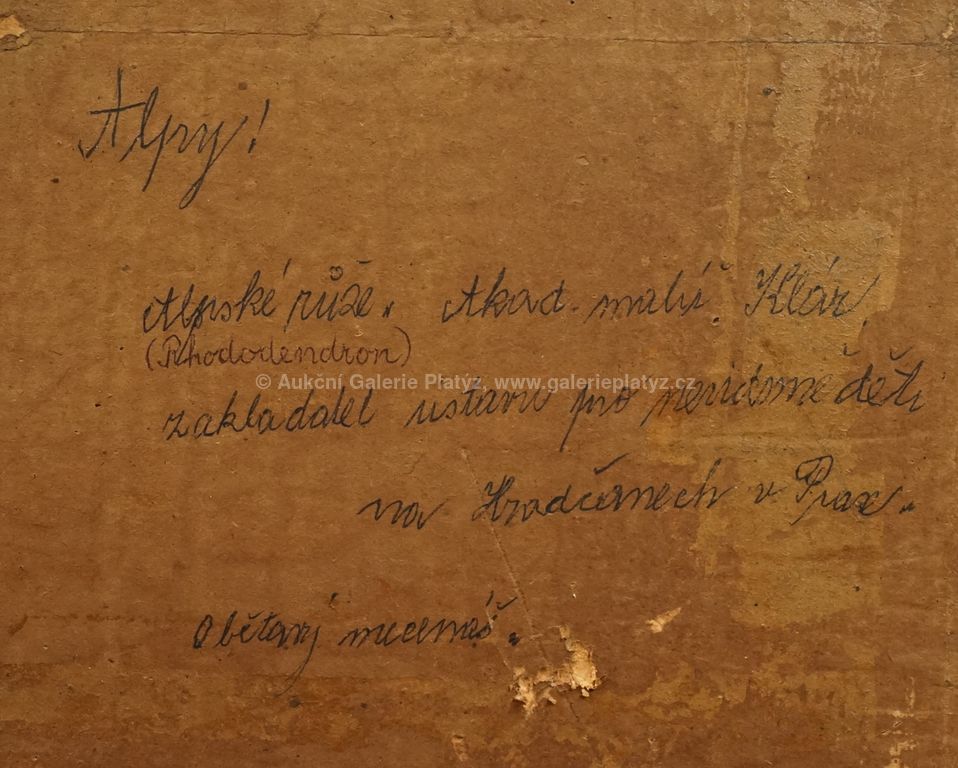 Alpy!
Alpské růže. Akad. malíř. Klár,
(Rhododendron)
© Aukční Galerie Platýz, www.galerieplatyz.cz
zakladatel ústavu pro nevidomé děti
na Hradčanech v Praze.
Obětavý mecenáš.